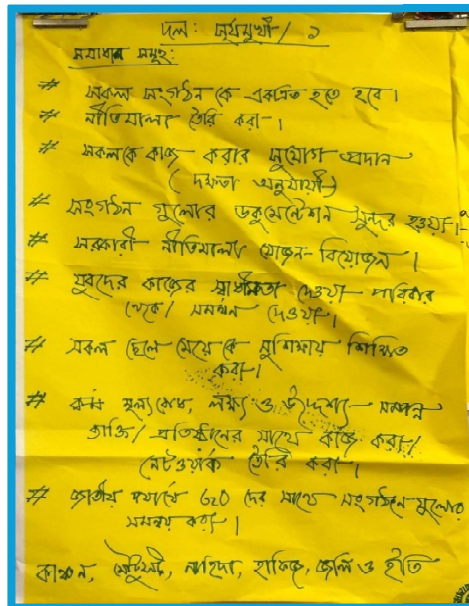 দল: সূর্যমুখী / ১
সমাধান সমূহ:
# সকল সংগঠন কে একত্রিত হতে হবে।
# নীতিমালা তৈরি করা।
# সকলকে কাজ করার সুযোগ প্রদান
( দক্ষতা অনুযায়ী )
# সংগঠন গুলোর ডকুমেন্টেশন সুন্দর হওয়া।
# সরকারী নীতিমালা যোজন-বিয়োজন।
# যুবদের কাজের স্বাধীনতা দেওয়া পরিবার
থেকে / সমর্থন দেওয়া।
# সকল ছেলে মেয়ে কে সুশিক্ষায় শিক্ষিত
করা।
# মূল্যবোধ, লক্ষ্য ও উদ্দেশ্য সম্পন্ন
ব্যক্তি / প্রতিষ্ঠানের সাথে কাজ করা /
নেটওয়ার্ক তৈরি করা।
# জাতীয় পর্যায়ে দের সাথে সংগঠন গুলোর
সমন্বয় করা।
কাঞ্চন, মৌটুসী, নাহিদা, হাফিজ, জেলি ও ইতি